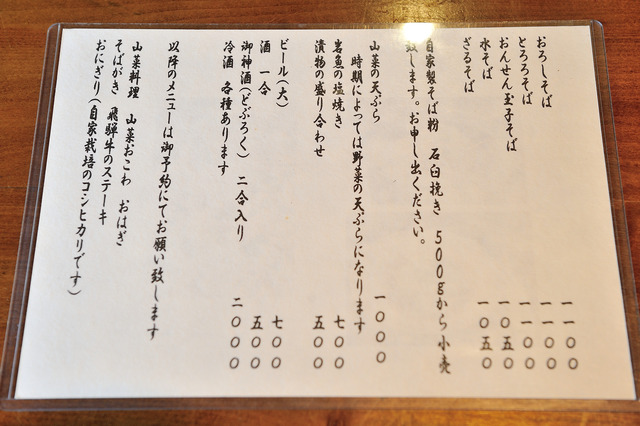 おろしそば 一一〇〇
とろろそば 一一〇〇
おんせん玉子そば 一一〇〇
水そば 一〇五〇
ざるそば 一〇五〇
自家製そば粉 石臼挽き 500gから小売
致します。お申し出ください。
山菜の天ぷら 一〇〇〇
時期によっては野菜の天ぷらになります
岩魚の塩焼き 七〇〇
漬物の盛り合わせ 五〇〇
ビール(大) 七〇〇
酒 一合 五〇〇
御神酒(どぶろく) 二合入り 二〇〇〇
冷酒 各種あります
以降のメニューは御予約にてお願い致します
山菜料理 山菜おこわ おはぎ
そばがき 飛騨牛のステーキ
おにぎり(自家栽培のコシヒカリです)